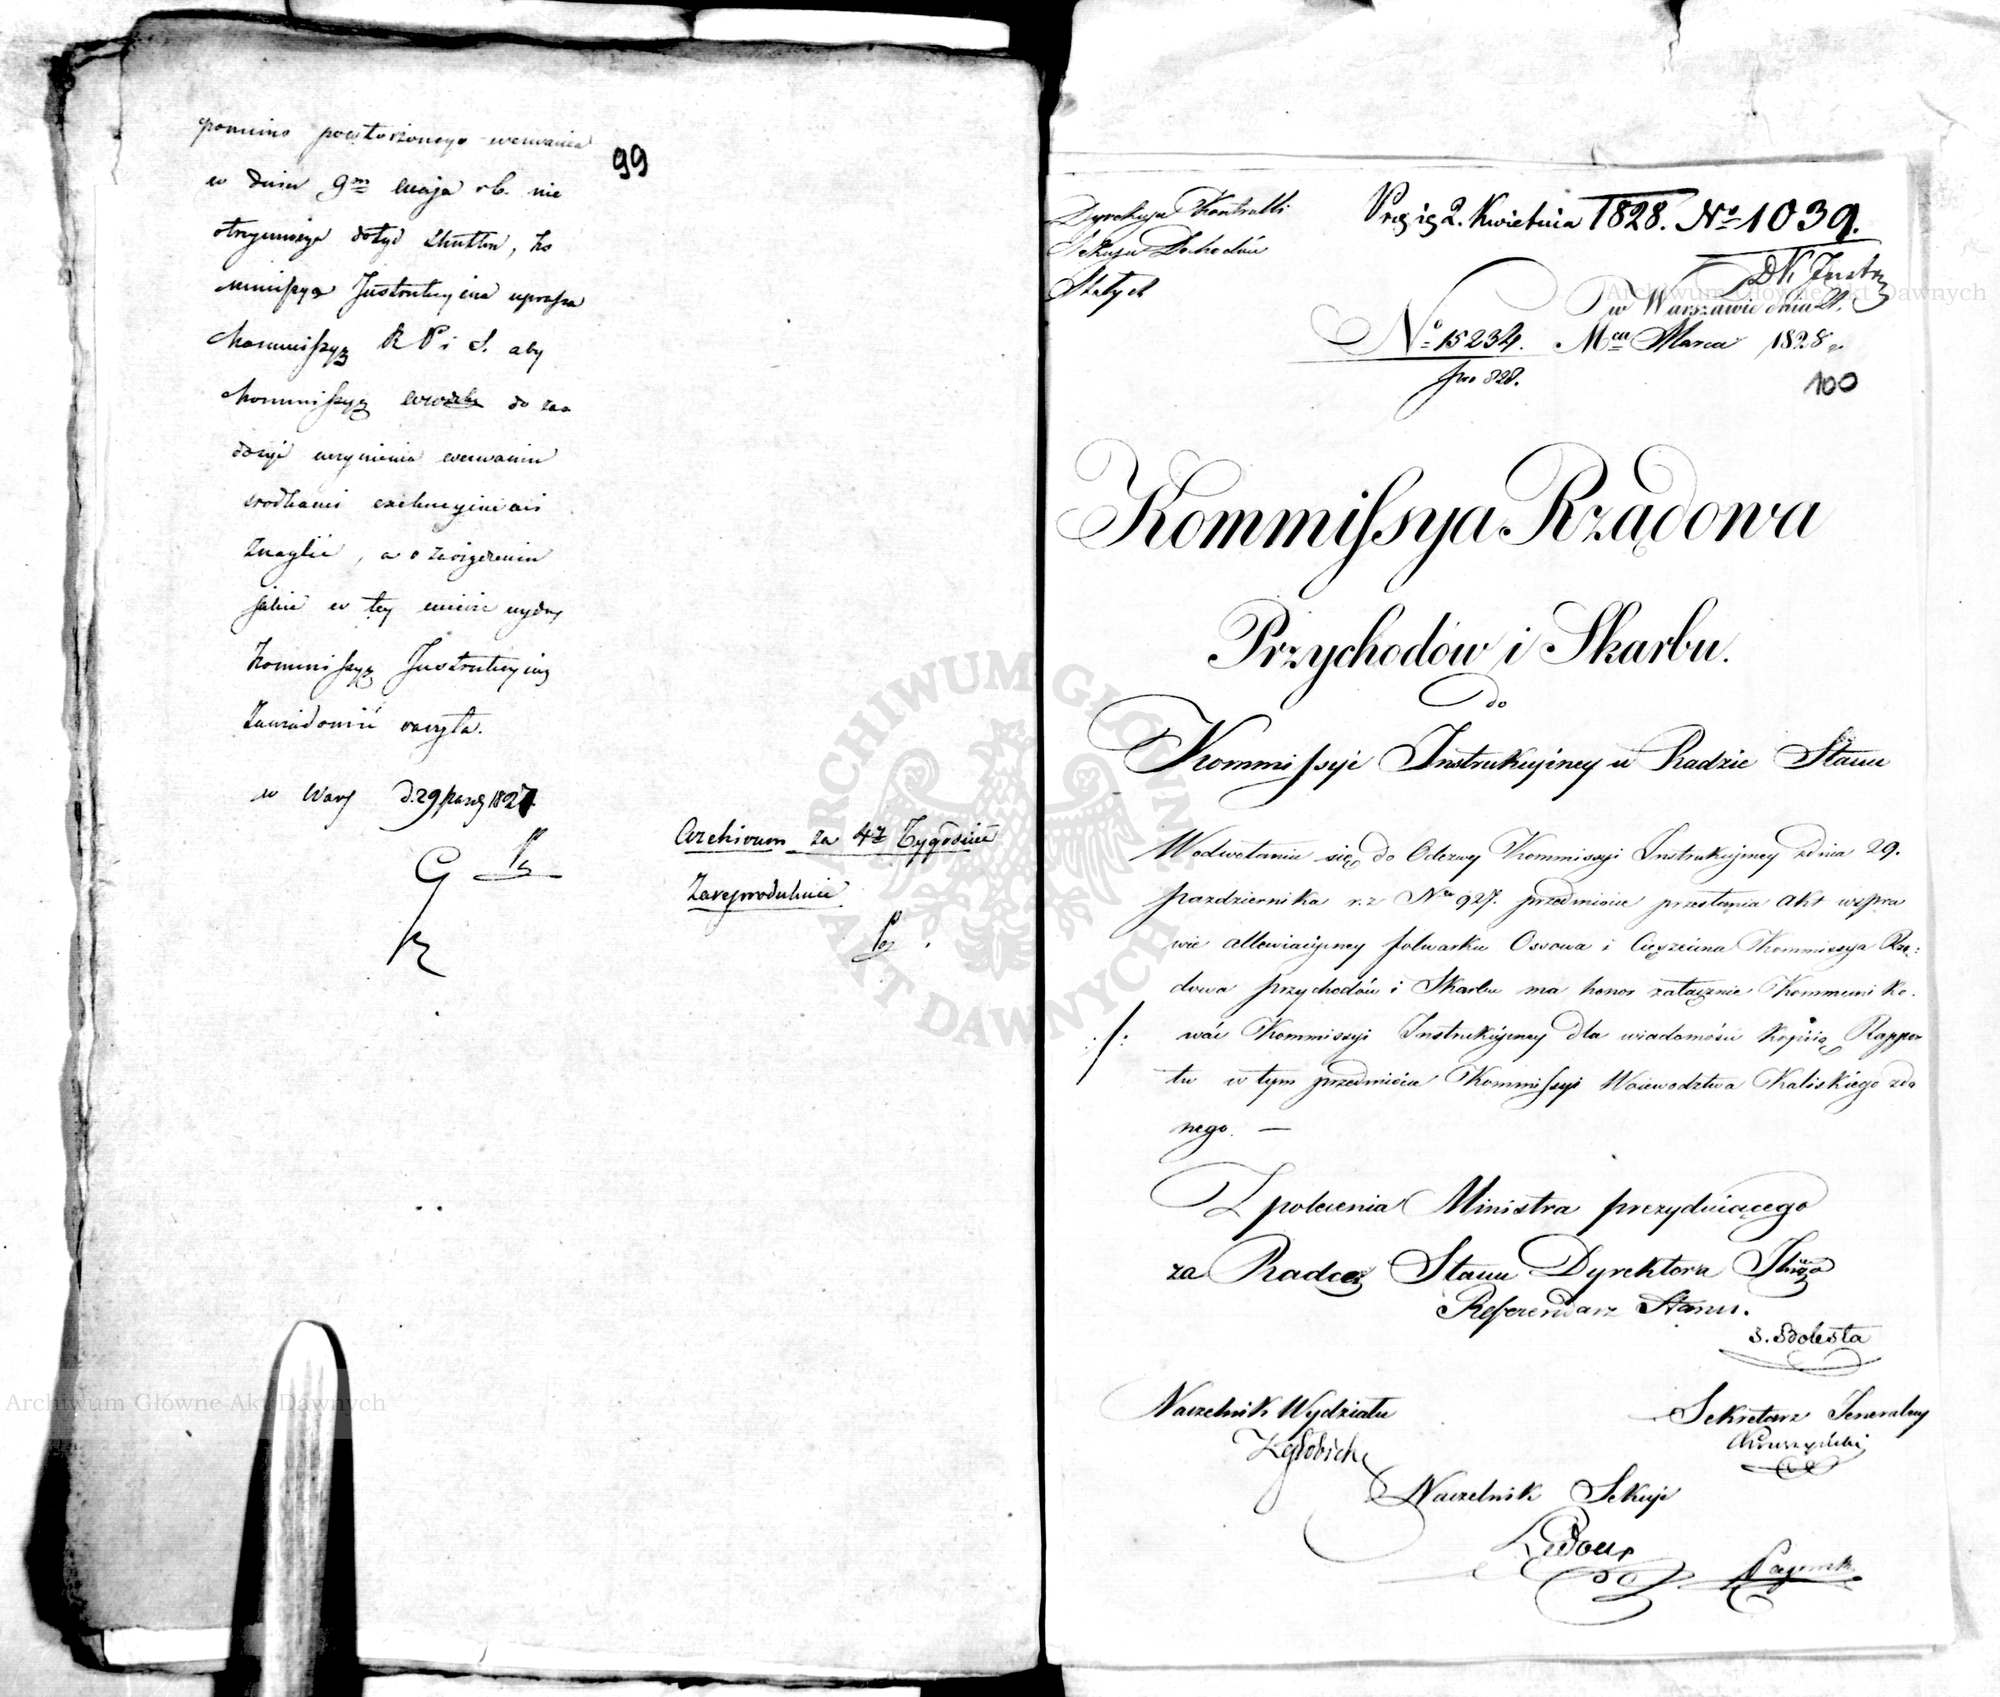 pomimo powtórzonego wezwania
99
w dniu 9m maja rb. nie
otrzymując dotąd skutku, Ko
mmissya Instrukcyina uprasza
Kommissyą R P i S. aby
Kommissyą Wwdzką do za
dosyć uczynienia wezwaniu
srodkami exekucyinemi
znaglić, a o zarządzeniu
jakie w tey mierze wyda,
Kommissyą Instrukcyiną
zawiadomić raczyła.
w Wars d. 29 paźd 1827.
Archivum za 4y Tygodnie
zareprodukuie
Dyrekcya Kontrolli
Sekcya Dochodów
Stałych
Prez ig 2. Kwietnia 1828. No 1039.
DK Instr
w Warszawie dnia 21.
No 15234. Mca Marca 1828 r.
pro 828.
100
Kommissya Rządowa
Przychodów i Skarbu.
do
Kommissyi Instrukcyiney w Radzie Stanu
W odwołaniu się do Odezwy Kommissyi Instrukcyiney z dnia 29.
października r. z. Nro 927. przedmiocie przesłania Akt wspra
wie allewiacyiney folwarku Ossowa i Cięzcina Kommissya Rzą:
dowa Przychodów i Skarbu ma honor załącznie Kommuniko.
./. wać Kommissyi Instrukcyiney dla wiadomości kopiią Rappor
tu w tym przedmiocie Kommissyi Woiewodztwa Kaliskiego zda
nego. —
Z polecenia Ministra prezyduiącego
za Radcę Stanu Dyrektora Jlnego
Referendarz Stanu.
Naczelnik Wydziału
Sekretarz Jeneralny
Naczelnik Sekcyi